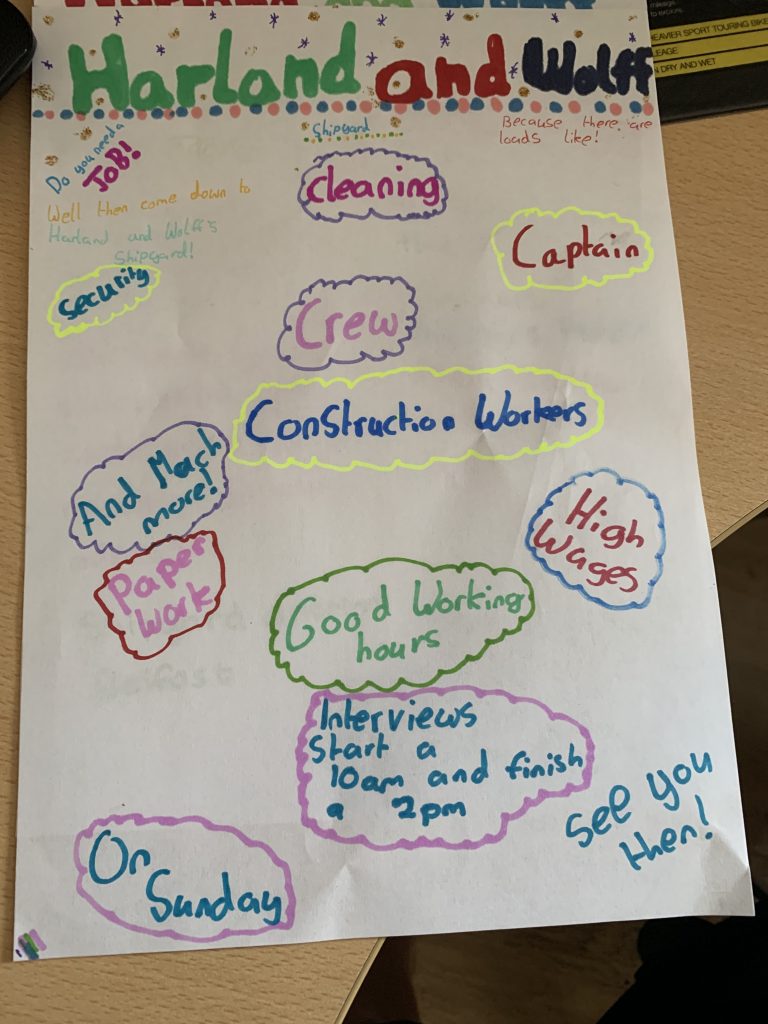 mileage.
to explore.
HEAVIER SPORT TOURING BIKE
LEAGE
N DRY AND WET
Harland and Wolff
Shipyard
Because there are
loads like!
Do you need a
JOB!
Well then come down to
Harland and Wolff's
Shipyard!
Cleaning
Captain
Security
Crew
Construction Workers
And Mach
more!
High
Wages
Paper
Work
Good Working
hours
Interviews
Start a
10am and finish
a 2pm
See you
then!
On
Sunday